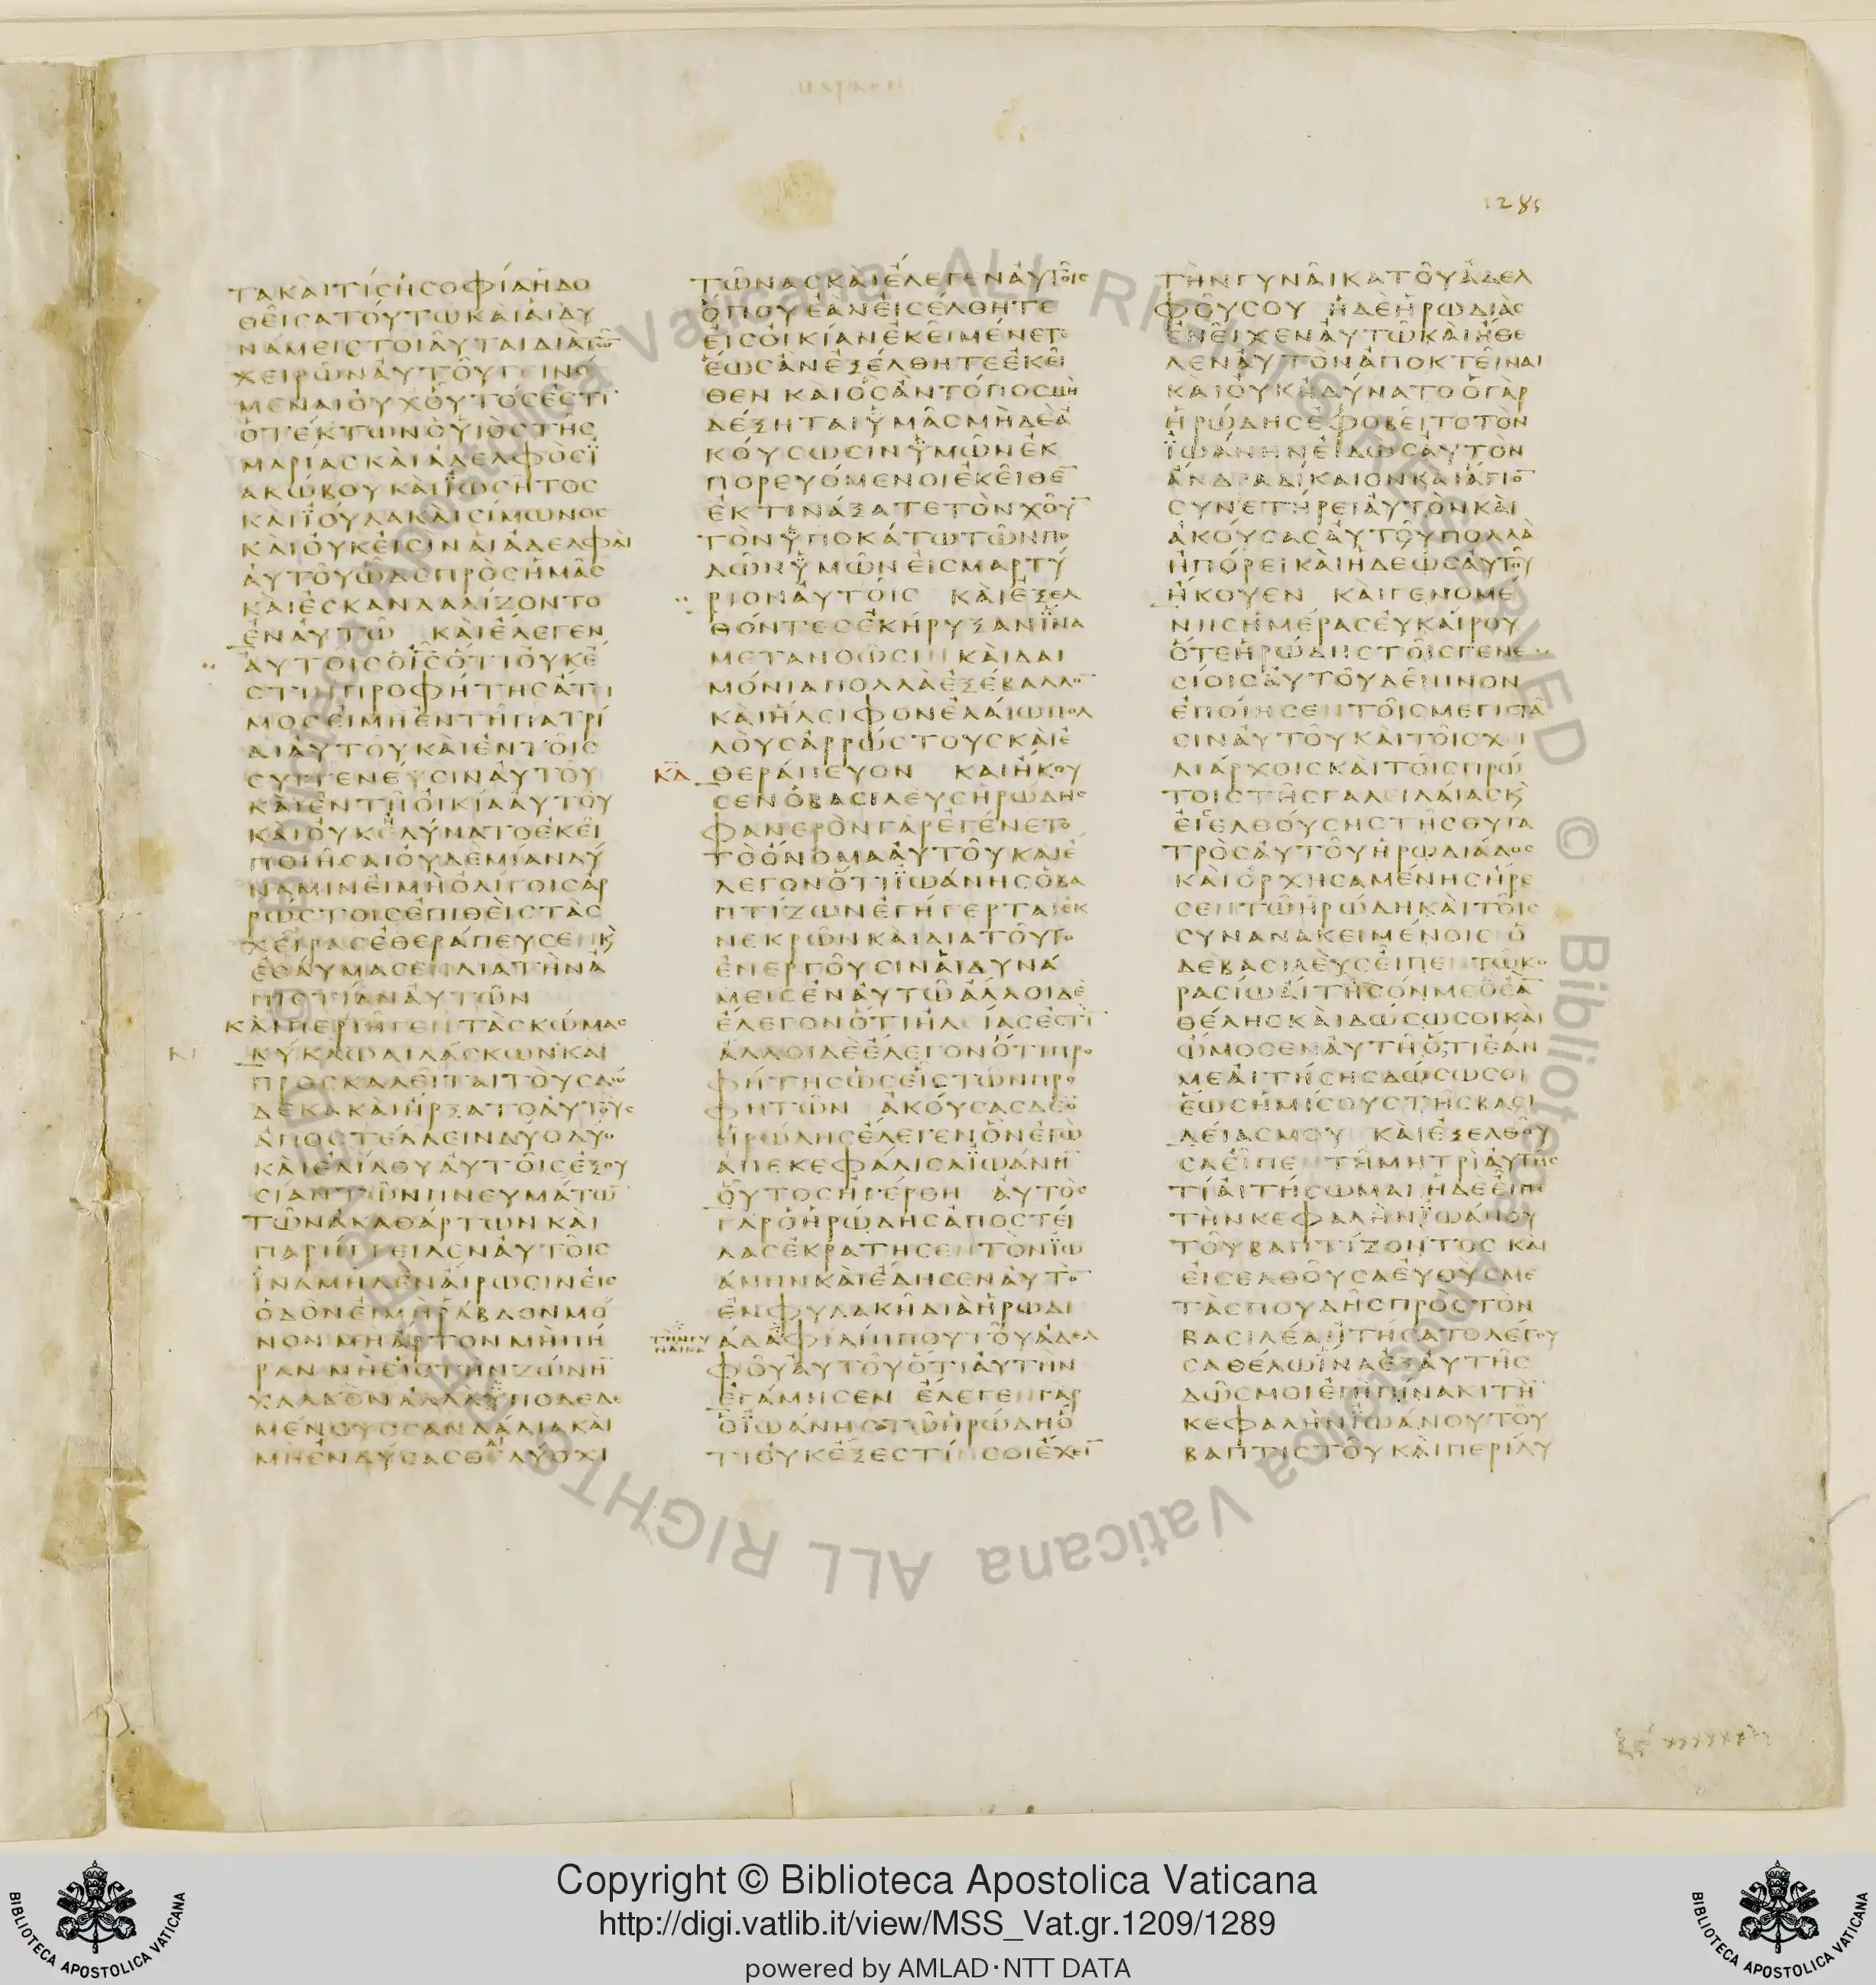 μαρκον
1285
ΤΑΚΑΙΤΙCΗCΟΦΙΑΗΔΟ
ΘΕΙCΑΤΟΥΤΩΚΑΙΑΙΔΥ
ΝΑΜΕΙCΤΟΙΑΥΤΑΙΔΙΑΤΩ̅
ΧΕΙΡΩΝΑΥΤΟΥΓΕΙΝΟ
ΜΕΝΑΙΟΥΧΟΥΤΟCΕCΤΙ̅
ΟΤΕΚΤΩΝΟΥΙΟCΤΗC
ΜΑΡΙΑCΚΑΙΑΔΕΛΦΟCΪ
ΑΚΩΒΟΥΚΑΙΪΩCΗΤΟC
ΚΑΙΪΟΥΔΑΚΑΙCΙΜΩΝΟC
ΚΑΙΟΥΚΕΙCΙΝΑΙΑΔΕΛΦΑΙ
ΑΥΤΟΥΩΔΕΠΡΟCΗΜΑC
ΚΑΙΕCΚΑΝΔΑΛΙΖΟΝΤΟ
ΕΝΑΥΤΩ ΚΑΙΕΛΕΓΕΝ
ΑΥΤΟΙCΟΙ̅C̅ΟΤΙΟΥΚΕ
CΤΙΝΠΡΟΦΗΤΗCΑΤΙ
ΜΟCΕΙΜΗΕΝΤΗΠΑΤΡΙ
ΔΙΑΥΤΟΥΚΑΙΕΝΤΟΙC
CΥΓΓΕΝΕΥCΙΝΑΥΤΟΥ
ΚΑΙΕΝΤΗΟΙΚΙΑΑΥΤΟΥ
ΚΑΙΟΥΚΕΔΥΝΑΤΟΕΚΕΙ
ΠΟΙΗCΑΙΟΥΔΕΜΙΑΝΔΥ
ΝΑΜΙΝΕΙΜΗΟΛΙΓΟΙCΑΡ
ΡΩCΤΟΙCΕΠΙΘΕΙCΤΑC
ΧΕΙΡΑCΕΘΕΡΑΠΕΥCΕΝϏ
ΕΘΑΥΜΑCΕΝΔΙΑΤΗΝΑ
ΠΙCΤΙΑΝΑΥΤΩΝ
ΚΑΙΠΕΡΙΗΓΕΝΤΑCΚΩΜΑC
ΚΥΚΛΩΔΙΔΑCΚΩΝΚΑΙ
ΠΡΟCΚΑΛΕΙΤΑΙΤΟΥCΔΩ
ΔΕΚΑΚΑΙΗΡΞΑΤΟΑΥΤΟΥC
ΑΠΟCΤΕΛΛΕΙΝΔΥΟΔΥΟ
ΚΑΙΕΔΙΔΟΥΑΥΤΟΙCΕΞΟΥ
CΙΑΝΤΩΝΠΝΕΥΜΑΤΩ̅
ΤΩΝΑΚΑΘΑΡΤΩΝΚΑΙ
ΠΑΡΗΓΓΕΙΛΕΝΑΥΤΟΙC
ΪΝΑΜΗΔΕΝΑΙΡΩCΙΝΕΙC
ΟΔΟΝΕΙΜΗΡΑΒΔΟΝΜΟ
ΝΟΝΜΗΑΡΤΟΝΜΗΠΗ
ΡΑΝΜΗΕΙCΤΗΝΖΩΝΗ̅
ΧΑΛΚΟΝΑΛΛΑΥΠΟΔΕΔΕ
ΜΕΝΟΥCCΑΝΔΑΛΙΑΚΑΙ
ΜΗΕΝΔΥCΑCΘΑΙΔΥΟΧΙ
ΤΩΝΑCΚΑΙΕΛΕΓΕΝΑΥΤΟΙC
ΟΠΟΥΕΑΝΕΙCΕΛΘΗΤΕ
ΕΙCΟΙΚΙΑΝΕΚΕΙΜΕΝΕΤΕ
ΕΩCΑΝΕΞΕΛΘΗΤΕΕΚΕΙ
ΘΕΝ ΚΑΙΟCΑΝΤΟΠΟCΜΗ
ΔΕΞΗΤΑΙΫΜΑCΜΗΔΕΑ
ΚΟΥCΩCΙΝΫΜΩΝΕΚ
ΠΟΡΕΥΟΜΕΝΟΙΕΚΕΙΘΕ̅
ΕΚΤΙΝΑΞΑΤΕΤΟΝΧΟΥ̅
ΤΟΝΫΠΟΚΑΤΩΤΩΝΠΟ
ΔΩΝΫΜΩΝΕΙCΜΑΡΤΥ
ΡΙΟΝΑΥΤΟΙC ΚΑΙΕΞΕΛ
ΘΟΝΤΕCΕΚΗΡΥΞΑΝΪΝΑ
ΜΕΤΑΝΟΩCΙΝΚΑΙΔΑΙ
ΜΟΝΙΑΠΟΛΛΑΕΞΕΒΑΛΛΟ̅
ΚΑΙΗΛΕΙΦΟΝΕΛΑΙΩΠΟΛ
ΛΟΥCΑΡΡΩCΤΟΥCΚΑΙΕ
ΚΑ ΘΕΡΑΠΕΥΟΝ ΚΑΙΗΚΟΥ
CΕΝΟΒΑCΙΛΕΥCΗΡΩΔΗC
ΦΑΝΕΡΟΝΓΑΡΕΓΕΝΕΤΟ
ΤΟΟΝΟΜΑΑΥΤΟΥΚΑΙΕ
ΛΕΓΟΝΟΤΙΪΩΑΝΗCΟΒΑ
ΠΤΙΖΩΝΕΓΗΓΕΡΤΑΙΕΚ
ΝΕΚΡΩΝΚΑΙΔΙΑΤΟΥΤΟ
ΕΝΕΡΓΟΥCΙΝΑΙΔΥΝΑ
ΜΕΙCΕΝΑΥΤΩΑΛΛΟΙΔΕ
ΕΛΕΓΟΝΟΤΙΗΛΕΙΑCΕCΤΙ̅
ΑΛΛΟΙΔΕΕΛΕΓΟΝΟΤΙΠΡΟ
ΦΗΤΗCΩCΕΙCΤΩΝΠΡΟ
ΦΗΤΩΝ ΑΚΟΥCΑCΔΕΟ
ΗΡΩΔΗCΕΛΕΓΕΝΟΝΕΓΩ
ΑΠΕΚΕΦΑΛΙCΑΪΩΑΝΗ̅
ΟΥΤΟCΗΓΕΡΘΗ ΑΥΤΟC
ΓΑΡΟΗΡΩΔΗCΑΠΟCΤΕΙ
ΛΑCΕΚΡΑΤΗCΕΝΤΟΝΪΩ
ΑΝΗΝΚΑΙΕΔΗCΕΝΑΥΤΟ̅
ΕΝΦΥΛΑΚΗΔΙΑΗΡΩΔΙ
ΤΗΝΓΥ
ΝΑΙΚΑ
ΑΔΑΦΙΛΙΠΠΟΥΤΟΥΑΔΕΛ
ΦΟΥΑΥΤΟΥΟΤΙΑΥΤΗΝ
ΕΓΑΜΗCΕΝ ΕΛΕΓΕΝΓΑΡ
ΟΪΩΑΝΗCΤΩΗΡΩΔΗΟ
ΤΙΟΥΚΕΞΕCΤΙΝCΟΙΕΧΕΙ̅
ΤΗΝΓΥΝΑΙΚΑΤΟΥΑΔΕΛ
ΦΟΥCΟΥ ΗΔΕΗΡΩΔΙΑC
ΕΝΕΙΧΕΝΑΥΤΩΚΑΙΗΘΕ
ΛΕΝΑΥΤΟΝΑΠΟΚΤΕΙΝΑΙ
ΚΑΙΟΥΚΗΔΥΝΑΤΟΟΓΑΡ
ΗΡΩΔΗCΕΦΟΒΕΙΤΟΤΟΝ
ΪΩΑΝΗΝΕΙΔΩCΑΥΤΟΝ
ΑΝΔΡΑΔΙΚΑΙΟΝΚΑΙΑΓΙΟ̅
CΥΝΕΤΗΡΕΙΑΥΤΟΝΚΑΙ
ΑΚΟΥCΑCΑΥΤΟΥΠΟΛΛΑ
ΗΠΟΡΕΙΚΑΙΗΔΕΩCΑΥΤΟΥ
ΗΚΟΥΕΝ ΚΑΙΓΕΝΟΜΕ
ΝΗCΗΜΕΡΑCΕΥΚΑΙΡΟΥ
ΟΤΕΗΡΩΔΗCΤΟΙCΓΕΝΕ
CΙΟΙCΑΥΤΟΥΔΕΙΠΝΟΝ
ΕΠΟΙΗCΕΝΤΟΙCΜΕΓΙCΤΑ
CΙΝΑΥΤΟΥΚΑΙΤΟΙCΧΙ
ΛΙΑΡΧΟΙCΚΑΙΤΟΙCΠΡΩ
ΤΟΙCΤΗCΓΑΛΕΙΛΑΙΑCϏ
ΕΙCΕΛΘΟΥCΗCΤΗCΘΥΓΑ
ΤΡΟCΑΥΤΟΥΗΡΩΔΙΑΔΟC
ΚΑΙΟΡΧΗCΑΜΕΝΗCΗΡΕ
CΕΝΤΩΗΡΩΔΗΚΑΙΤΟΙC
CΥΝΑΝΑΚΕΙΜΕΝΟΙC Ο
ΔΕΒΑCΙΛΕΥCΕΙΠΕΝΤΩΚΟ
ΡΑCΙΩΑΙΤΗCΟΝΜΕΟΕΑ̅
ΘΕΛΗCΚΑΙΔΩCΩCΟΙΚΑΙ
ΩΜΟCΕΝΑΥΤΗΟΤΙΕΑΝ
ΜΕΑΙΤΗCΗCΔΩCΩCΟΙ
ΕΩCΗΜΙCΟΥCΤΗCΒΑCΙ
ΛΕΙΑCΜΟΥ ΚΑΙΕΞΕΛΘΟΥ
CΑΕΙΠΕΝΤΗΜΗΤΡΙΑΥΤΗC
ΤΙΑΙΤΗCΩΜΑΙΗΔΕΕΙΠΕ
ΤΗΝΚΕΦΑΛΗΝΪΩΑΝΟΥ
ΤΟΥΒΑΠΤΙΖΟΝΤΟC ΚΑΙ
ΕΙCΕΛΘΟΥCΑΕΥΘΥCΜΕ
ΤΑCΠΟΥΔΗCΠΡΟCΤΟΝ
ΒΑCΙΛΕΑΗΤΗCΑΤΟΛΕΓΟΥ
CΑΘΕΛΩΪΝΑΕΞΑΥΤΗC
ΔΩCΜΟΙΕΠΙΠΙΝΑΚΙΤΗ̅
ΚΕΦΑΛΗΝΪΩΑΝΟΥΤΟΥ
ΒΑΠΤΙCΤΟΥΚΑΙΠΕΡΙΛΥ
Copyright © Biblioteca Apostolica Vaticana
http://digi.vatlib.it/view/MSS_Vat.gr.1209/1289
powered by AMLAD·NTT DATA
BIBLIOTECA APOSTOLICA VATICANA
BIBLIOTECA APOSTOLICA VATICANA
© Biblioteca Apostolica Vaticana ALL RIGHTS RESERVED